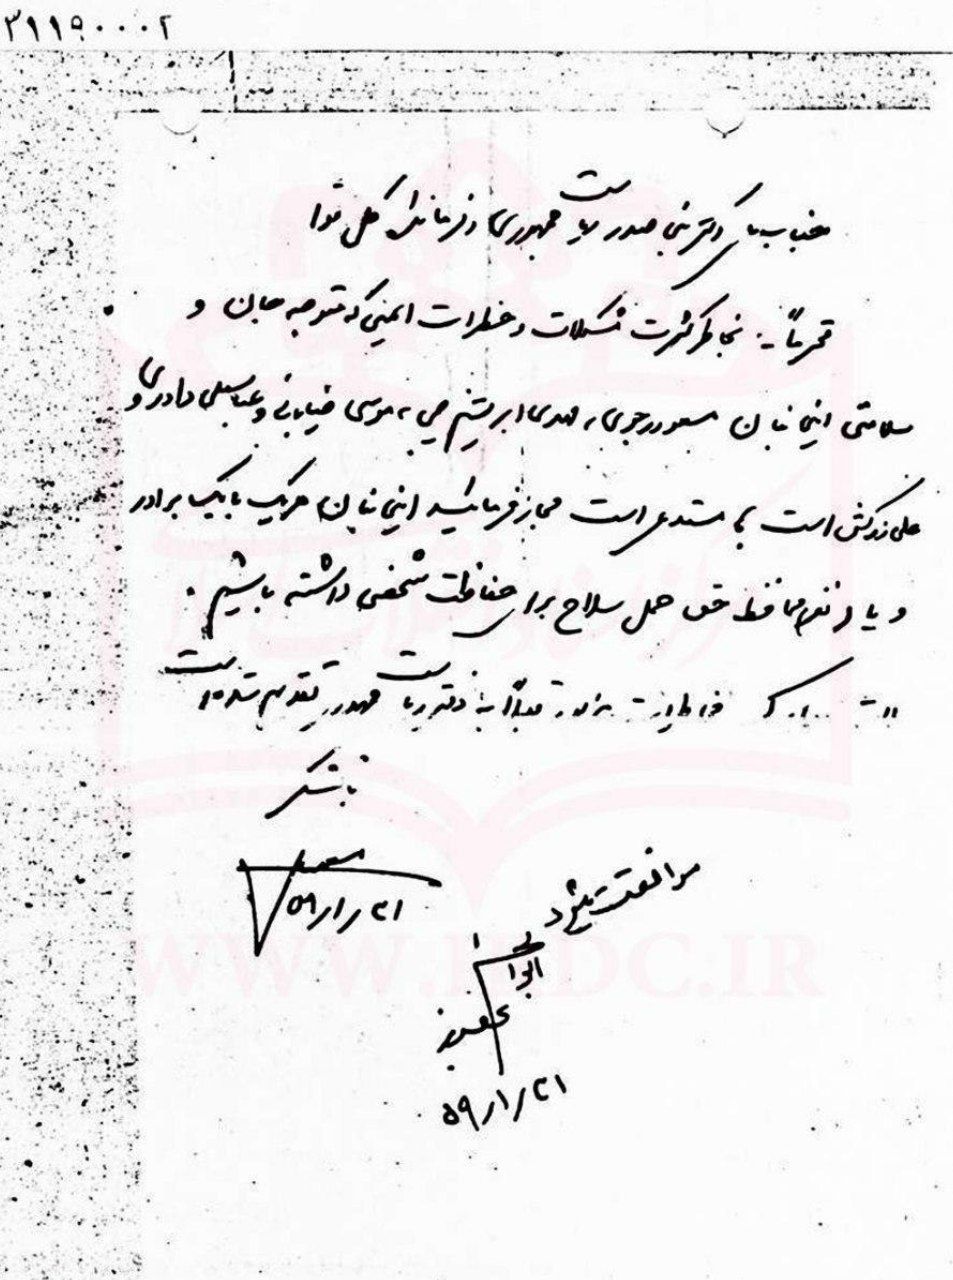 ۳۱۱۹۰۰۰۲
جناب آقای دکتر بنی صدر ریاست جمهوری و فرمانده کل قوا
محترماً - بخاطر کثرت مشکلات و خطرات ایمنی که متوجه جان و
سلامتی اینجانبان مسعود رجوی، مهدی ابریشم چی، موسی خیابانی و عباسعلی داوری و
علی زرکش است مستدعی است مجاز فرمائید اینجانبان هریک با یک برادر
و یا نفر محافظ حق حمل سلاح برای حفاظت شخصی داشته باشیم.
قبلاً به دفتر ریاست جمهوری تقدیم شده است
با تشکر
مسعود
۵۹/۱/۲۱
موافقت میشود
ابوالحسن بنی صدر
۵۹/۱/۲۱
WWW.IRDC.IR